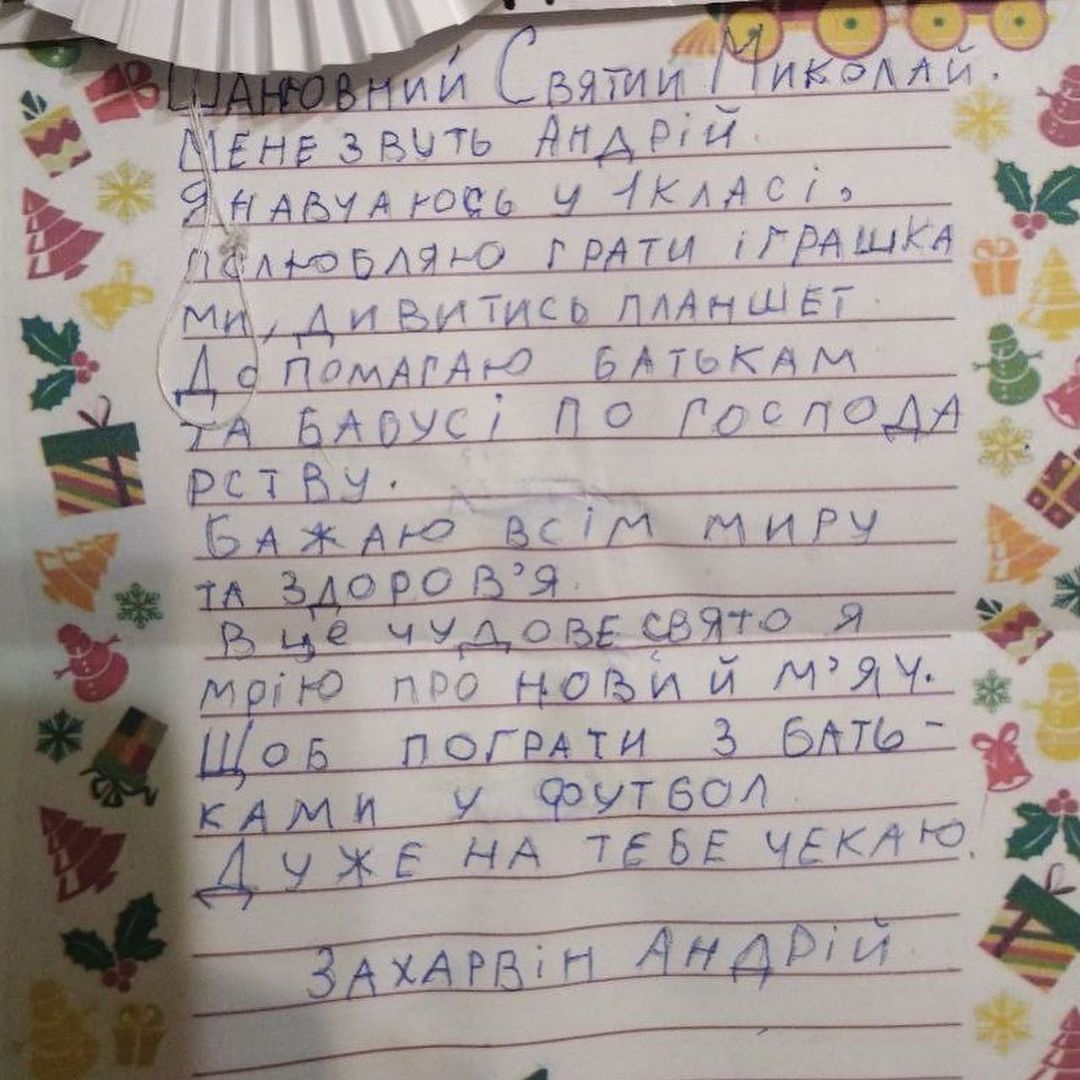 Шановний Святий Миколай.
Мене звуть Андрій.
Я навчаюсь у 1 класі,
полюбляю грати іграшка
ми, дивитись планшет.
Допомагаю батькам
та бабусі по господа
рству.
Бажаю всім миру
та здоров'я.
В це чудове свято я
мрію про новий м'яч.
Щоб пограти з бать-
ками у футбол
Дуже на тебе чекаю.
Захарвін Андрій